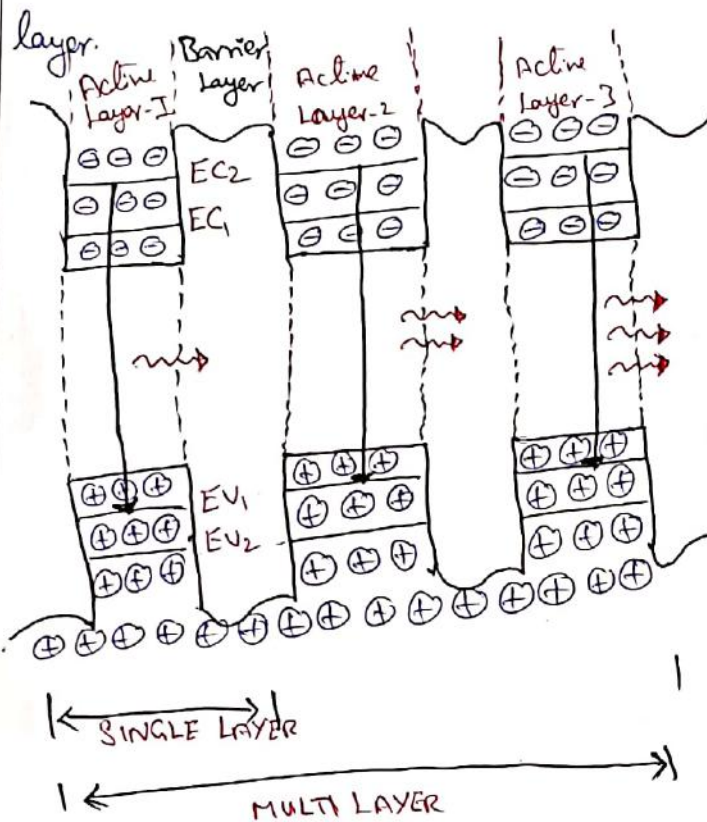 layer.
Active Layer-I
Barrier Layer
Active Layer-2
Active Layer-3
EC2
EC1
EV1
EV2
SINGLE LAYER
MULTI LAYER